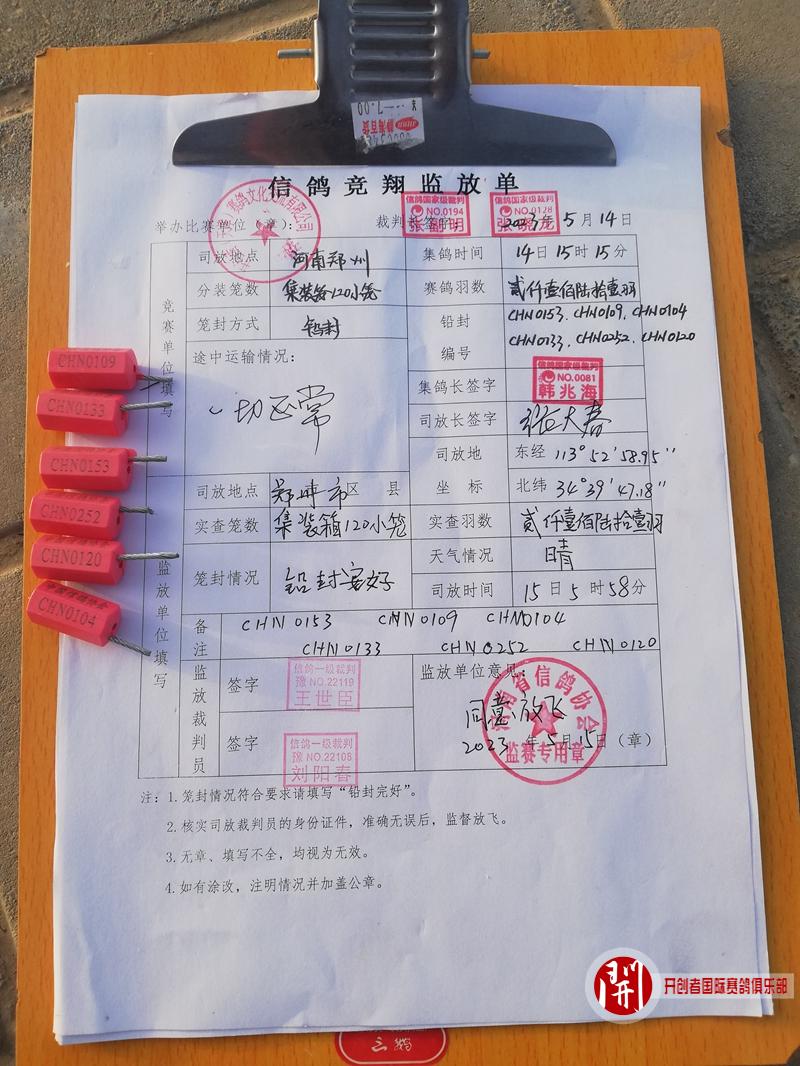 信鸽竞翔监放单
举办比赛单位（章）： 裁判长签字： 2023年5月14日
赛鸽文化 有限公司
信鸽国家级裁判 NO.0194
信鸽国家级裁判 NO.0128
竞赛单位填写
司放地点 河南郑州 集鸽时间 14日15时15分
分装笼数 集装箱120小笼 赛鸽羽数 贰仟壹佰陆拾壹羽
笼封方式 铅封 铅封编号 CHN0153、CHN0109、CHN0104
CHN0133、CHN0252、CHN0120
途中运输情况：
一切正常
集鸽长签字 信鸽国家级裁判 NO.0081 韩兆海
司放长签字 张大春
司放地坐标 东经 113°52'58.95"
北纬 34°39'47.18"
监放单位填写
司放地点 郑州市区 县
实查笼数 集装箱120小笼 实查羽数 贰仟壹佰陆拾壹羽
笼封情况 铅封完好 天气情况 晴
司放时间 15日5时58分
备注 CHN0153 CHN0109 CHN0104
CHN0133 CHN0252 CHN0120
监放裁判员
签字 信鸽一级裁判 豫NO.22119 王世臣
签字 信鸽一级裁判 豫NO.22108 刘阳春
监放单位意见：
同意放飞
2023年5月15日（章）
河南省信鸽协会
监赛专用章
注：1.笼封情况符合要求请填写“铅封完好”。
2.核实司放裁判员的身份证件，准确无误后，监督放飞。
3.无章、填写不全，均视为无效。
4.如有涂改，注明情况并加盖公章。
CHN0109
CHN0133
CHN0153
CHN0252
CHN0120
CHN0104
開
开创者国际赛鸽俱乐部